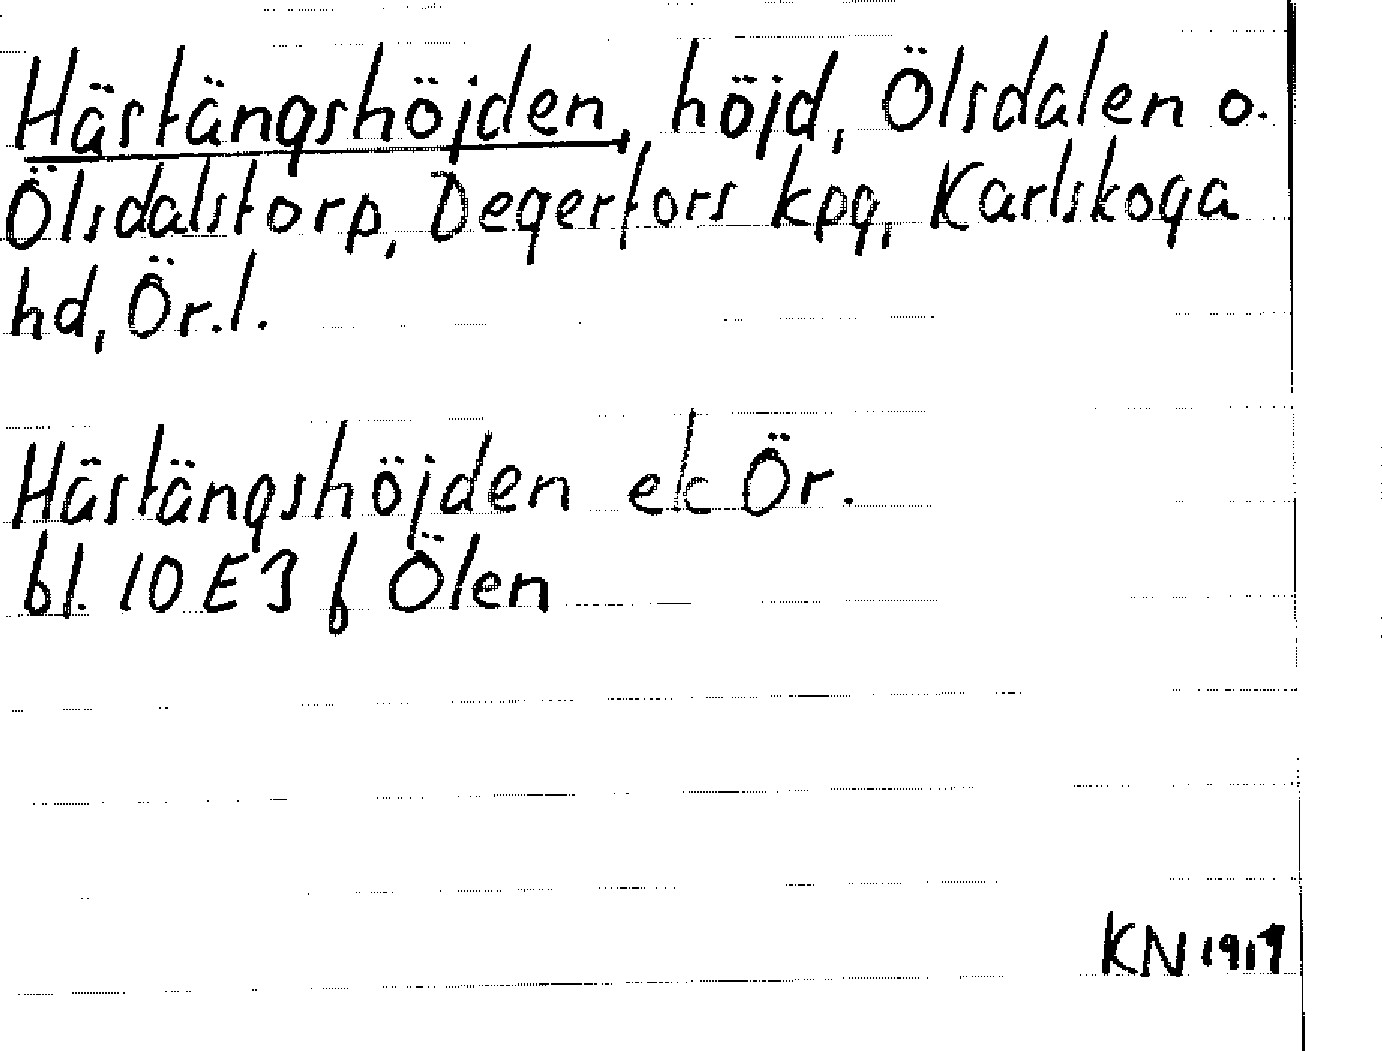 Hästängshöjden, höjd, Ölsdalen o.
Ölsdalstorp, Degerfors kpg, Karlskoga
hd, Ör.l.
Hästängshöjden ek Ör.
bl. 10 E 3 f Ölen
KN